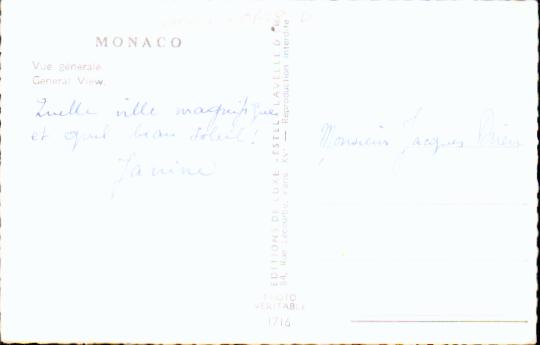 MONACO
Vue générale
General View.
Quelle ville magnifique
et quel beau soleil !
Janine
EDITIONS DE LUXE «ESTEL» LAVELLE
84, Rue Lecourbe, Paris XVe — Reproduction interdite
PHOTO
VERITABLE
1716
Monsieur Jacques